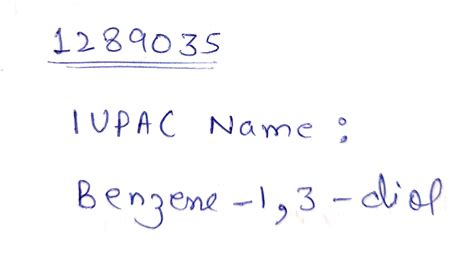 1289035
IUPAC Name :
Benzene-1,3-diol